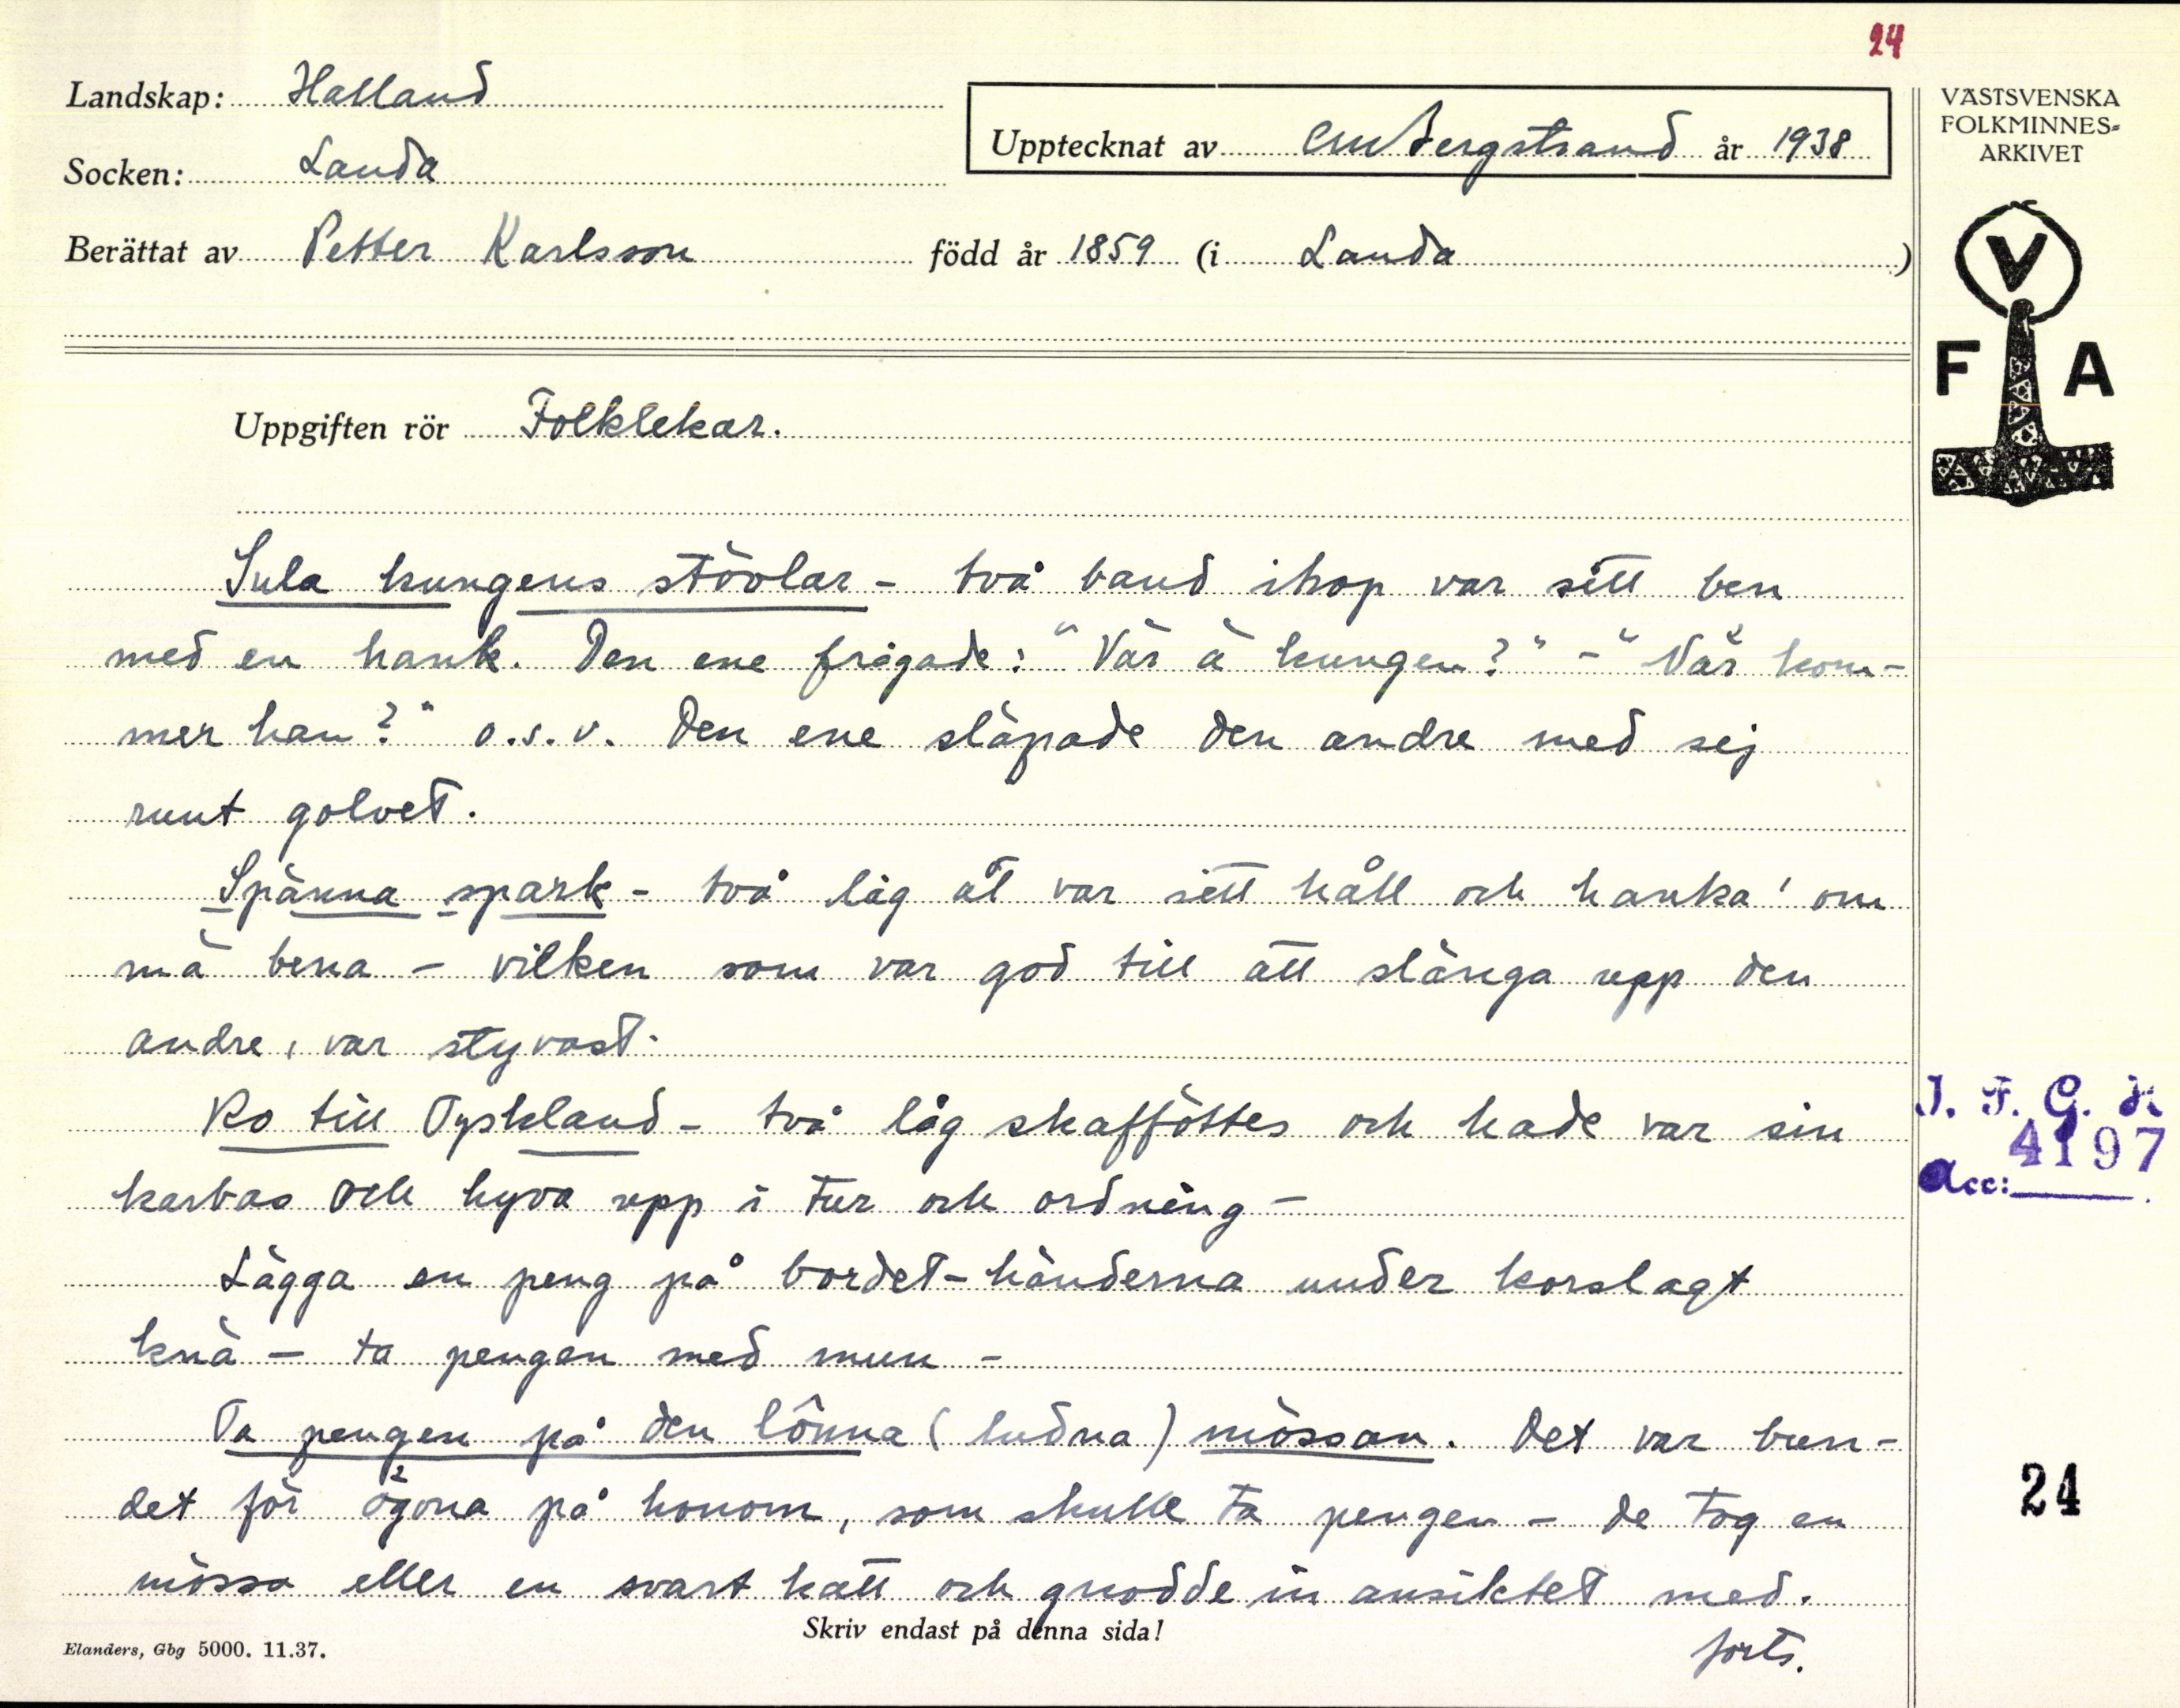 24
Landskap: Halland
Socken: Landa
Upptecknat av CMBergstrand år 1938
Berättat av Petter Karlsson född år 1859 (i Landa)
VÄSTSVENSKA
FOLKMINNES-
ARKIVET
V
F A
Uppgiften rör Folklekar.
Sula kungens stövlar - två band ihop var sitt ben
med en hank. Den ene frågade: "Vår ä kungen?" - "När kom-
mer han?" o.s.v. Den ene släpade den andre med sej
runt golvet.
Spänna spark - två låg åt var sitt håll och hanka' om
mä bena - vilken som var god till att slänga upp den
andre, var styvast.
Ro till Tyskland - två låg skafföttes och hade var sin
karbas och hyva upp i tur och ordning -
Lägga en peng på bordet - händerna under korslagt
knä - ta pengen med mun -
Ta pengen på den lônna (ludna) mössan. Det var bun-
det för ögona på honom, som skulle ta pengen - de tog en
mössa eller en svart katt och gnodde in ansiktet med.
forts.
I. F. G. H.
4197
Acc:
24
Skriv endast på denna sida!
Elanders, Gbg 5000. 11.37.